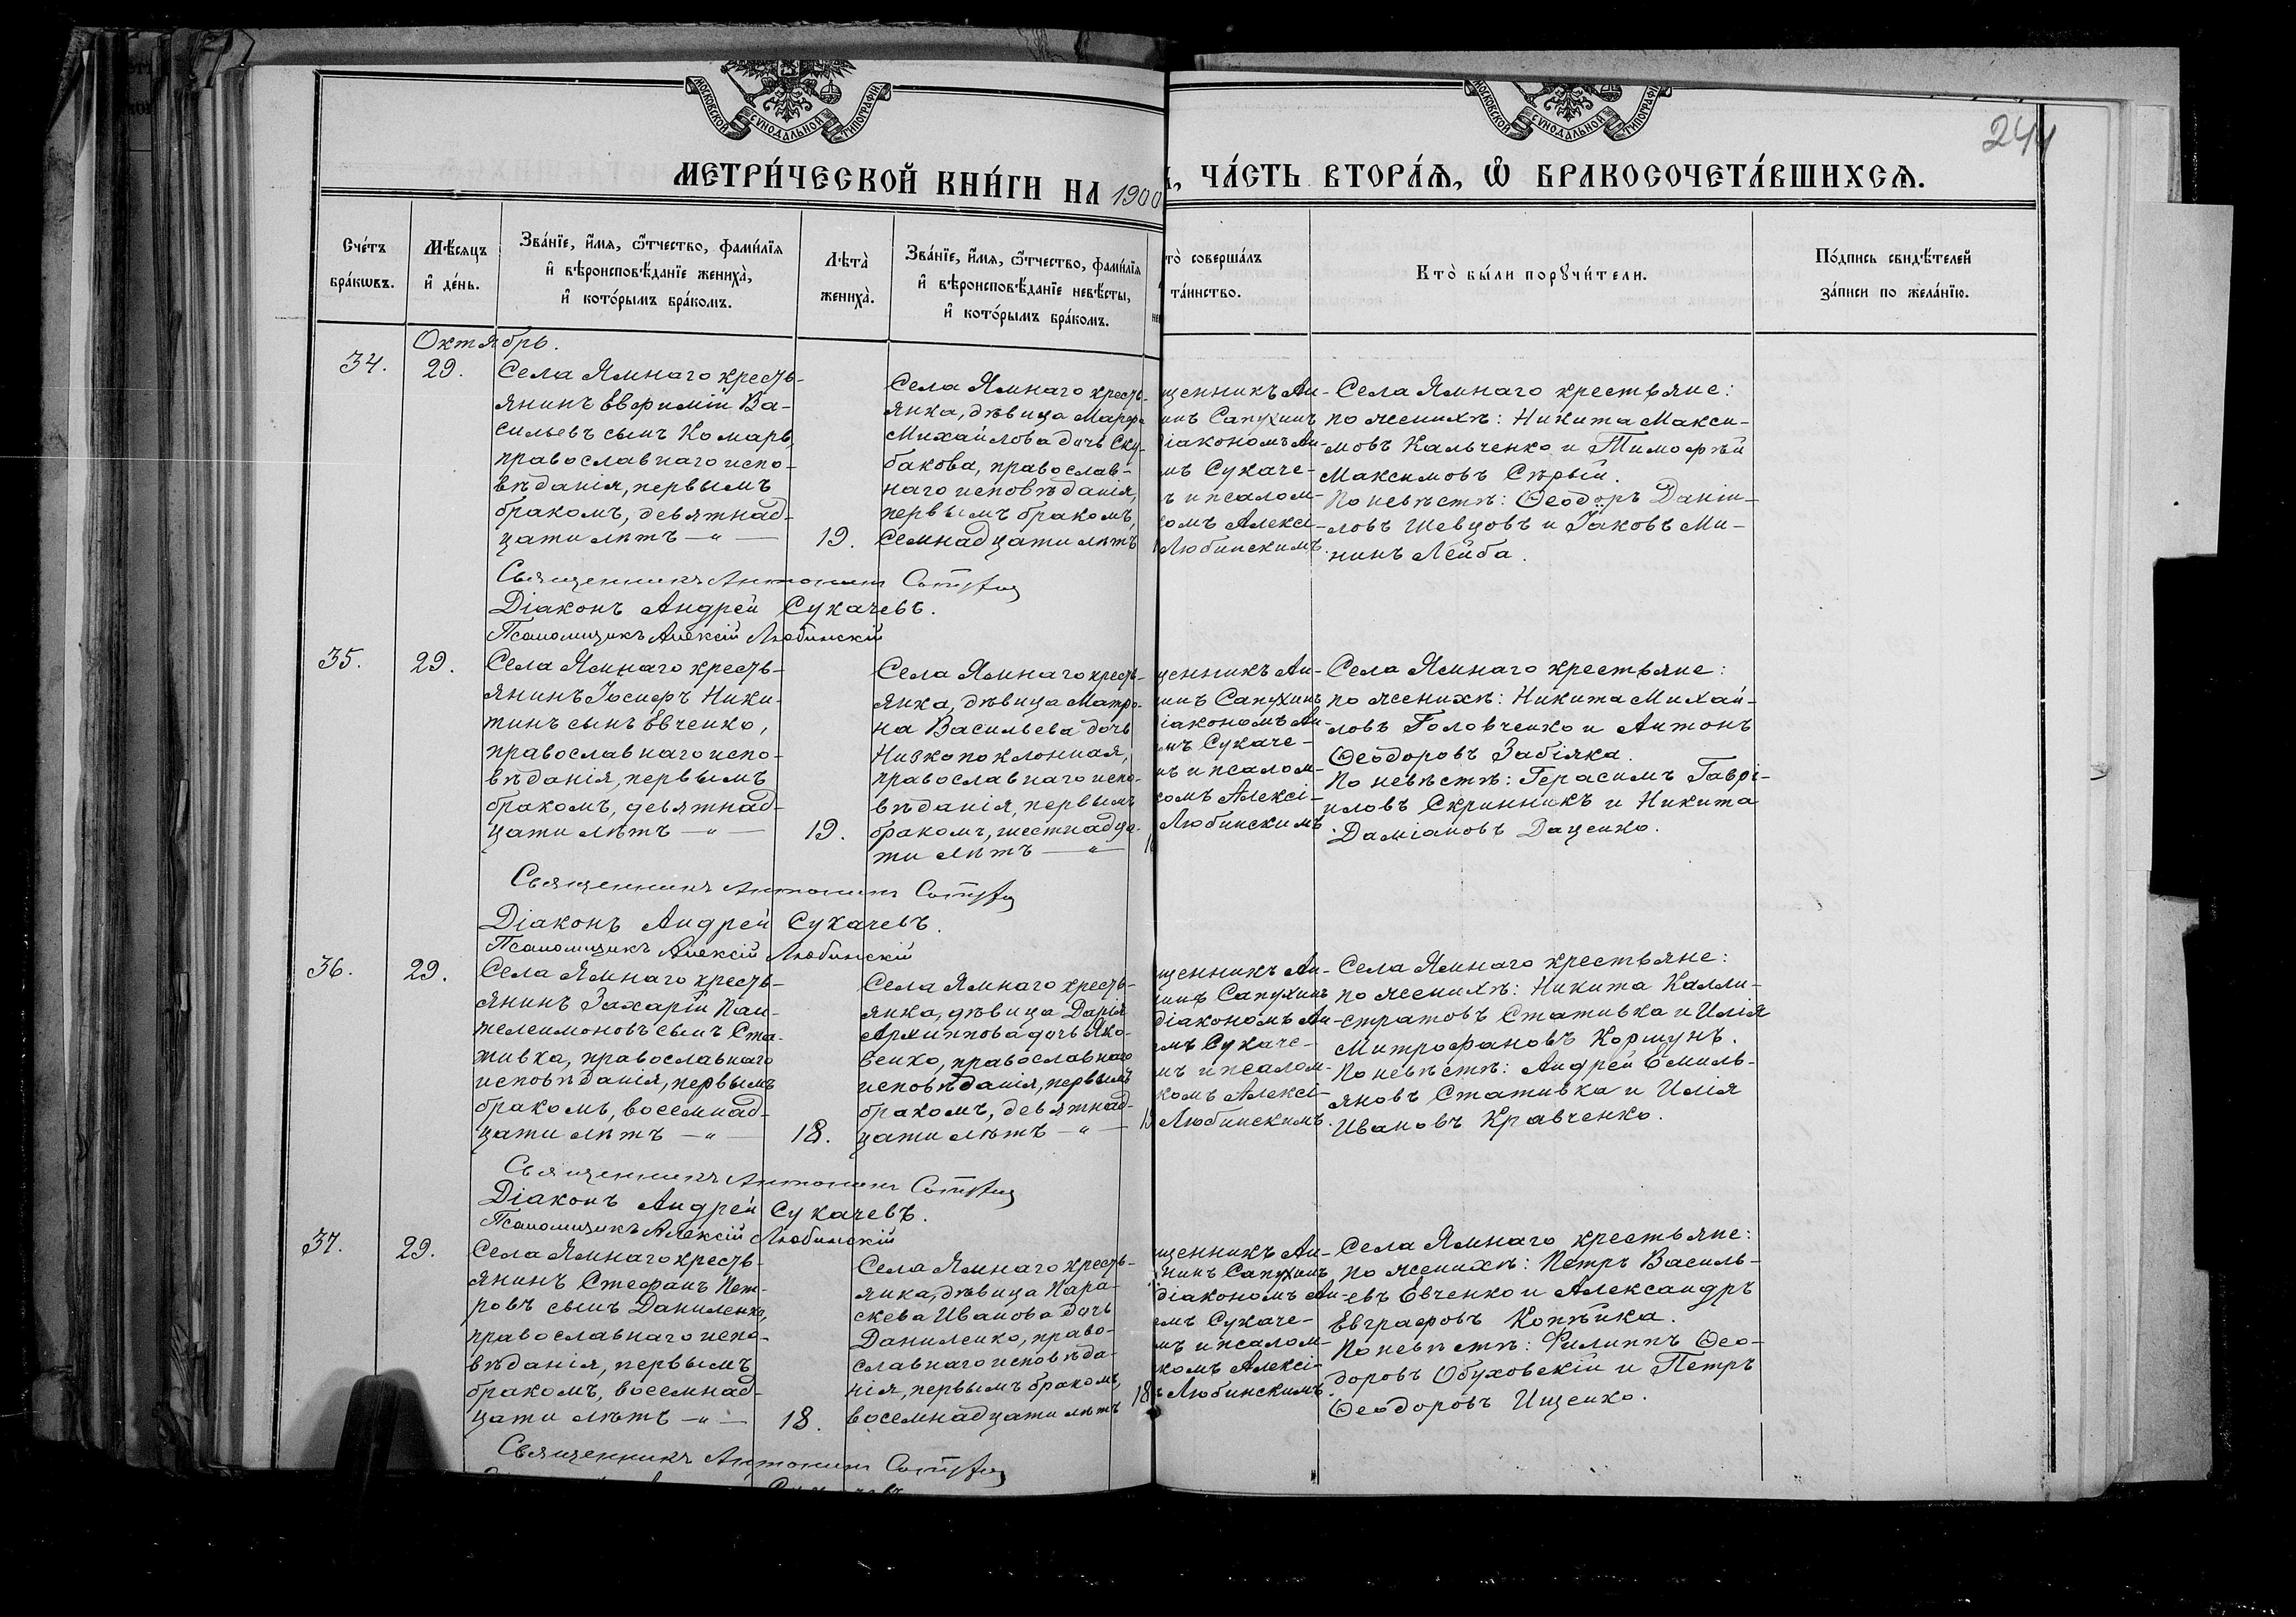 МОСКОВСКОЙ СѴНОДАЛЬНОЙ ТИПОГРАФІИ
МОСКОВСКОЙ СѴНОДАЛЬНОЙ ТИПОГРАФІИ
244
МЕТРИ́ЧЕСКОЙ КНИ́ГИ НА 1900
, ЧА́СТЬ ВТОРА́Ѧ, Ѽ БРАКОСОЧЕТА́ВШИХСѦ.
Сче́тъ
бра́кѡвъ.
Мѣ́сяцъ
и҆ де́нь.
Зва́нїе, и҆́мѧ, ѻ҆́тчество, фами́лїѧ
и҆ вѣроисповѣ́данїе жениха̀,
и҆ кото́рымъ бра́комъ.
Лѣта̀
жениха̀.
Зва́нїе, и҆́мѧ, ѻ҆́тчество, фами́лїѧ
и҆ вѣроисповѣ́данїе невѣ́сты,
и҆ кото́рымъ бра́комъ.
то̀ соверша́лъ
та́инство.
Кто̀ бы́ли порꙋчи́тели.
По́дпись свидѣ́телей
за́писи по жела́нїю.
Октябрь.
34.
29.
Села Ямнаго кресть-
янинъ Евфимій Ва-
сильевъ сынъ Комаръ,
православнаго испо-
вѣданія, первымъ
бракомъ, девятнад-
цати лѣтъ — „ —
19.
Села Ямнаго кресть-
янка, дѣвица Марфа
Михайлова дочь Ску-
бакова, православ-
наго исповѣданія,
первымъ бракомъ,
семнадцати лѣтъ
щенникъ Ан-
инъ Сапухинъ
діакономъ Ан-
мъ Сухаче-
ъ и псалом-
комъ Алексі-
Любинскимъ.
Села Ямнаго крестьяне:
по женихѣ: Никита Макси-
мовъ Кальченко и Тимофѣй
Максимовъ Сѣрый.
По невѣстѣ: Ѳеодоръ Даніи-
ловъ Шевцовъ и Іаковъ Ми-
нинъ Лейба.
Священникъ Антонинъ
Діаконъ Андрей Сухачевъ.
Псаломщикъ Алексій Любинскій
35.
29.
Села Ямнаго кресть-
янинъ Іосифъ Ники-
тинъ сынъ Евченко,
православнаго испо-
вѣданія, первымъ
бракомъ, девятнад-
цати лѣтъ — „ —
19.
Села Ямнаго кресть-
янка, дѣвица Матро-
на Васильева дочь
Низкопоклонная,
православнаго испо-
вѣданія, первымъ
бракомъ, шестнадца-
ти лѣтъ — „ —
щенникъ Ан-
инъ Сапухинъ
діакономъ Ан-
мъ Сухаче-
ъ и псалом-
комъ Алексі-
Любинскимъ
Села Ямнаго крестьяне:
по женихѣ: Никита Михай-
ловъ Головченко и Антонъ
Ѳеодоровъ Забіяка.
По невѣстѣ: Герасимъ Гаврі-
иловъ Скринникъ и Никита
Даміановъ Даценко.
Священникъ Антонинъ
Діаконъ Андрей Сухачевъ.
Псаломщикъ Алексій Любинскій
36.
29.
Села Ямнаго кресть-
янинъ Захарій Пан-
телеимоновъ сынъ Ста-
тивка, православнаго
исповѣданія, первымъ
бракомъ, восемнад-
цати лѣтъ — „ —
18.
Села Ямнаго кресть-
янка, дѣвица Дарія
Архиппова дочь Яко-
венко, православнаго
исповѣданія, первымъ
бракомъ, девятнад-
цати лѣтъ — „ —
щенникъ Ан-
инъ Сапухинъ
діакономъ Ан-
емъ Сухаче-
мъ и псалом-
комъ Алексі-
Любинскимъ.
Села Ямнаго крестьяне:
по женихѣ: Никита Калли-
стратовъ Стативка и Илія
Митрофановъ Коршунъ.
По невѣстѣ: Андрей Емиль-
яновъ Стативка и Илія
Ивановъ Кравченко.
Священникъ Антонинъ
Діаконъ Андрей Сухачевъ.
Псаломщикъ Алексій Любинскій
37.
29.
Села Ямнаго кресть-
янинъ Стефанъ Пет-
ровъ сынъ Даниленко,
православнаго испо-
вѣданія, первымъ
бракомъ, восемнад-
цати лѣтъ — „ —
18.
Села Ямнаго кресть-
янка, дѣвица Пара-
скева Иванова дочь
Даниленко, право-
славнаго исповѣда-
нія, первымъ бракомъ,
восемнадцати лѣтъ
18
щенникъ Ан-
нинъ Сапухинъ
діакономъ Ан-
емъ Сухаче-
мъ и псалом-
комъ Алексі-
ъ Любинскимъ.
Села Ямнаго крестьяне:
по женихѣ: Петръ Василь-
евъ Евченко и Александръ
Евграфовъ Копѣйка.
По невѣстѣ: Филиппъ Ѳео-
доровъ Обуховскій и Петръ
Ѳеодоровъ Ищенко.
Священникъ Антонинъ